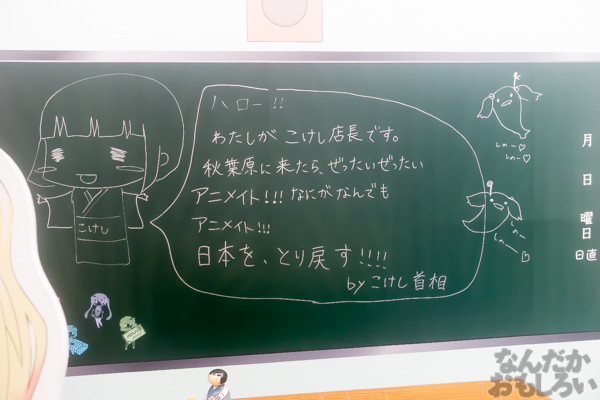 ハロー!!
わたしが こけし店長です。
秋葉原に来たら、ぜったいぜったい
アニメイト!!! なにがなんでも
アニメイト!!!
日本を、とり戻す!!!!
by こけし首相
こけし
月
日
曜日
日直
なんだか
おもしろい